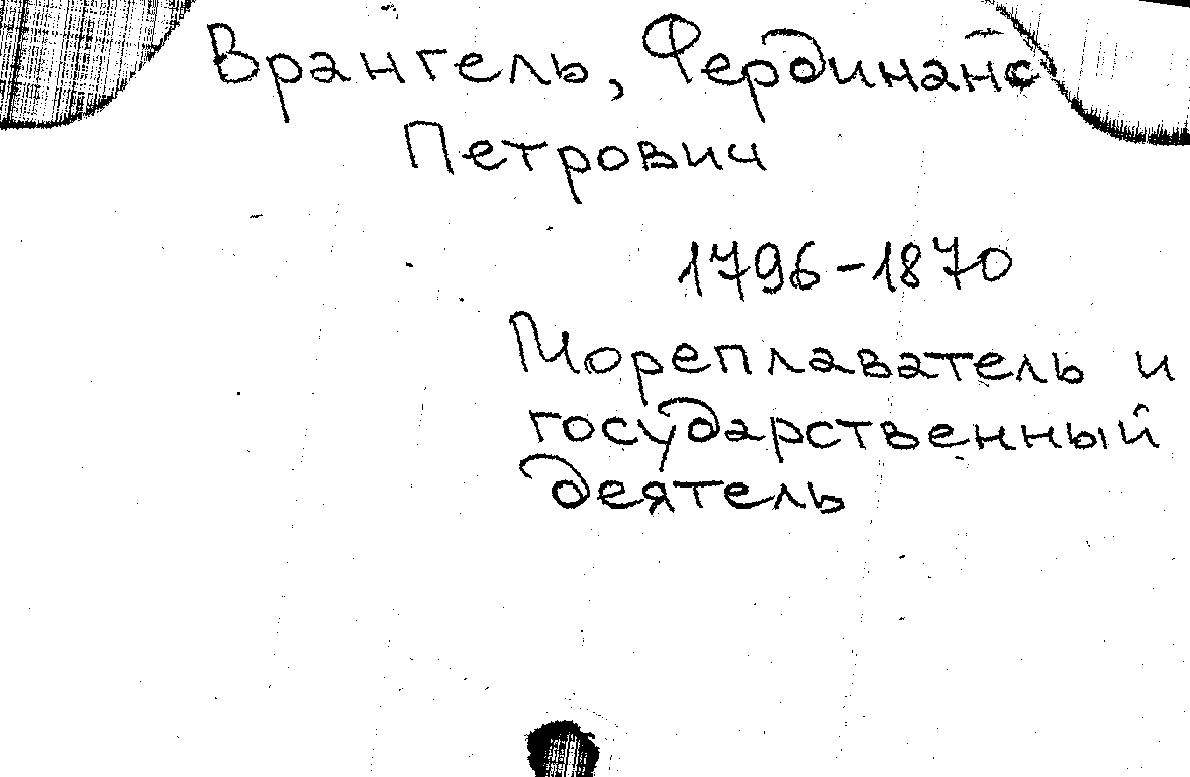 Врангель, Фердинанд
Петрович
1796-1870
Мореплаватель и
государственный
деятель